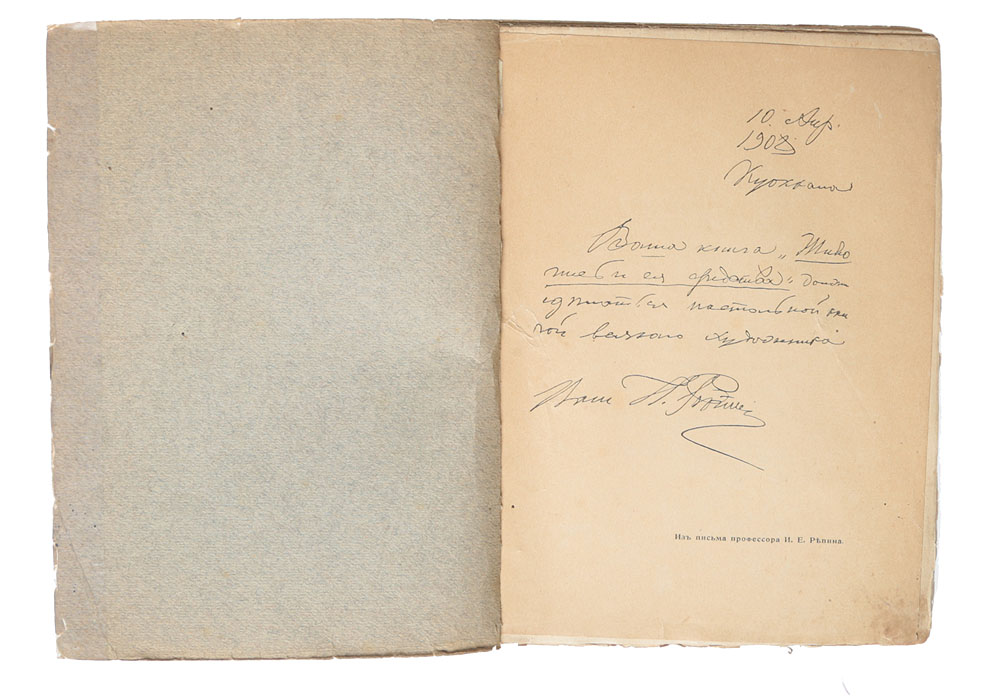 10. Апр.
1908
Куоккала
Ваша книга „Живо
пись и ея средства“
сдѣлаться настольной кни
гой всякаго художника
Ваш И. Рѣпин
Изъ письма профессора И. Е. Рѣпина.